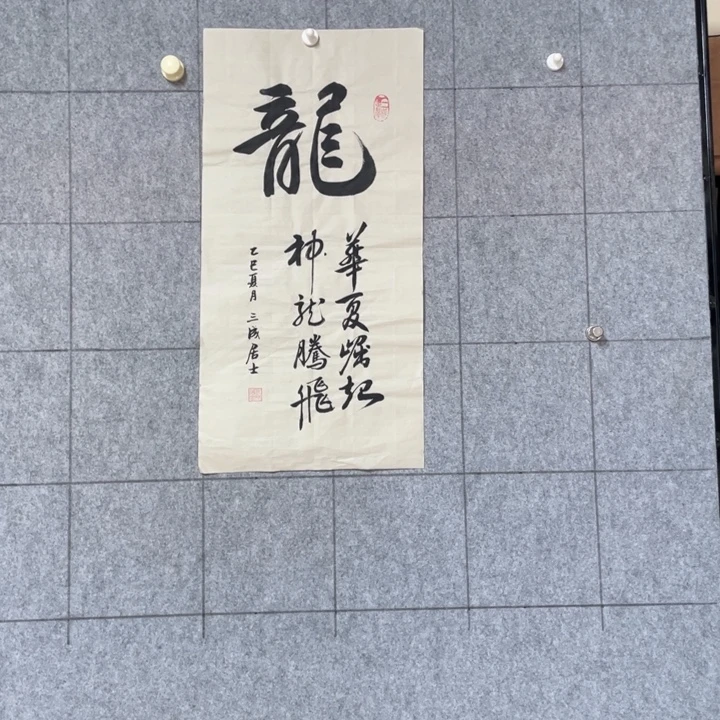 龍
華夏崛起
神龙騰飛
乙巳夏月 三成居士